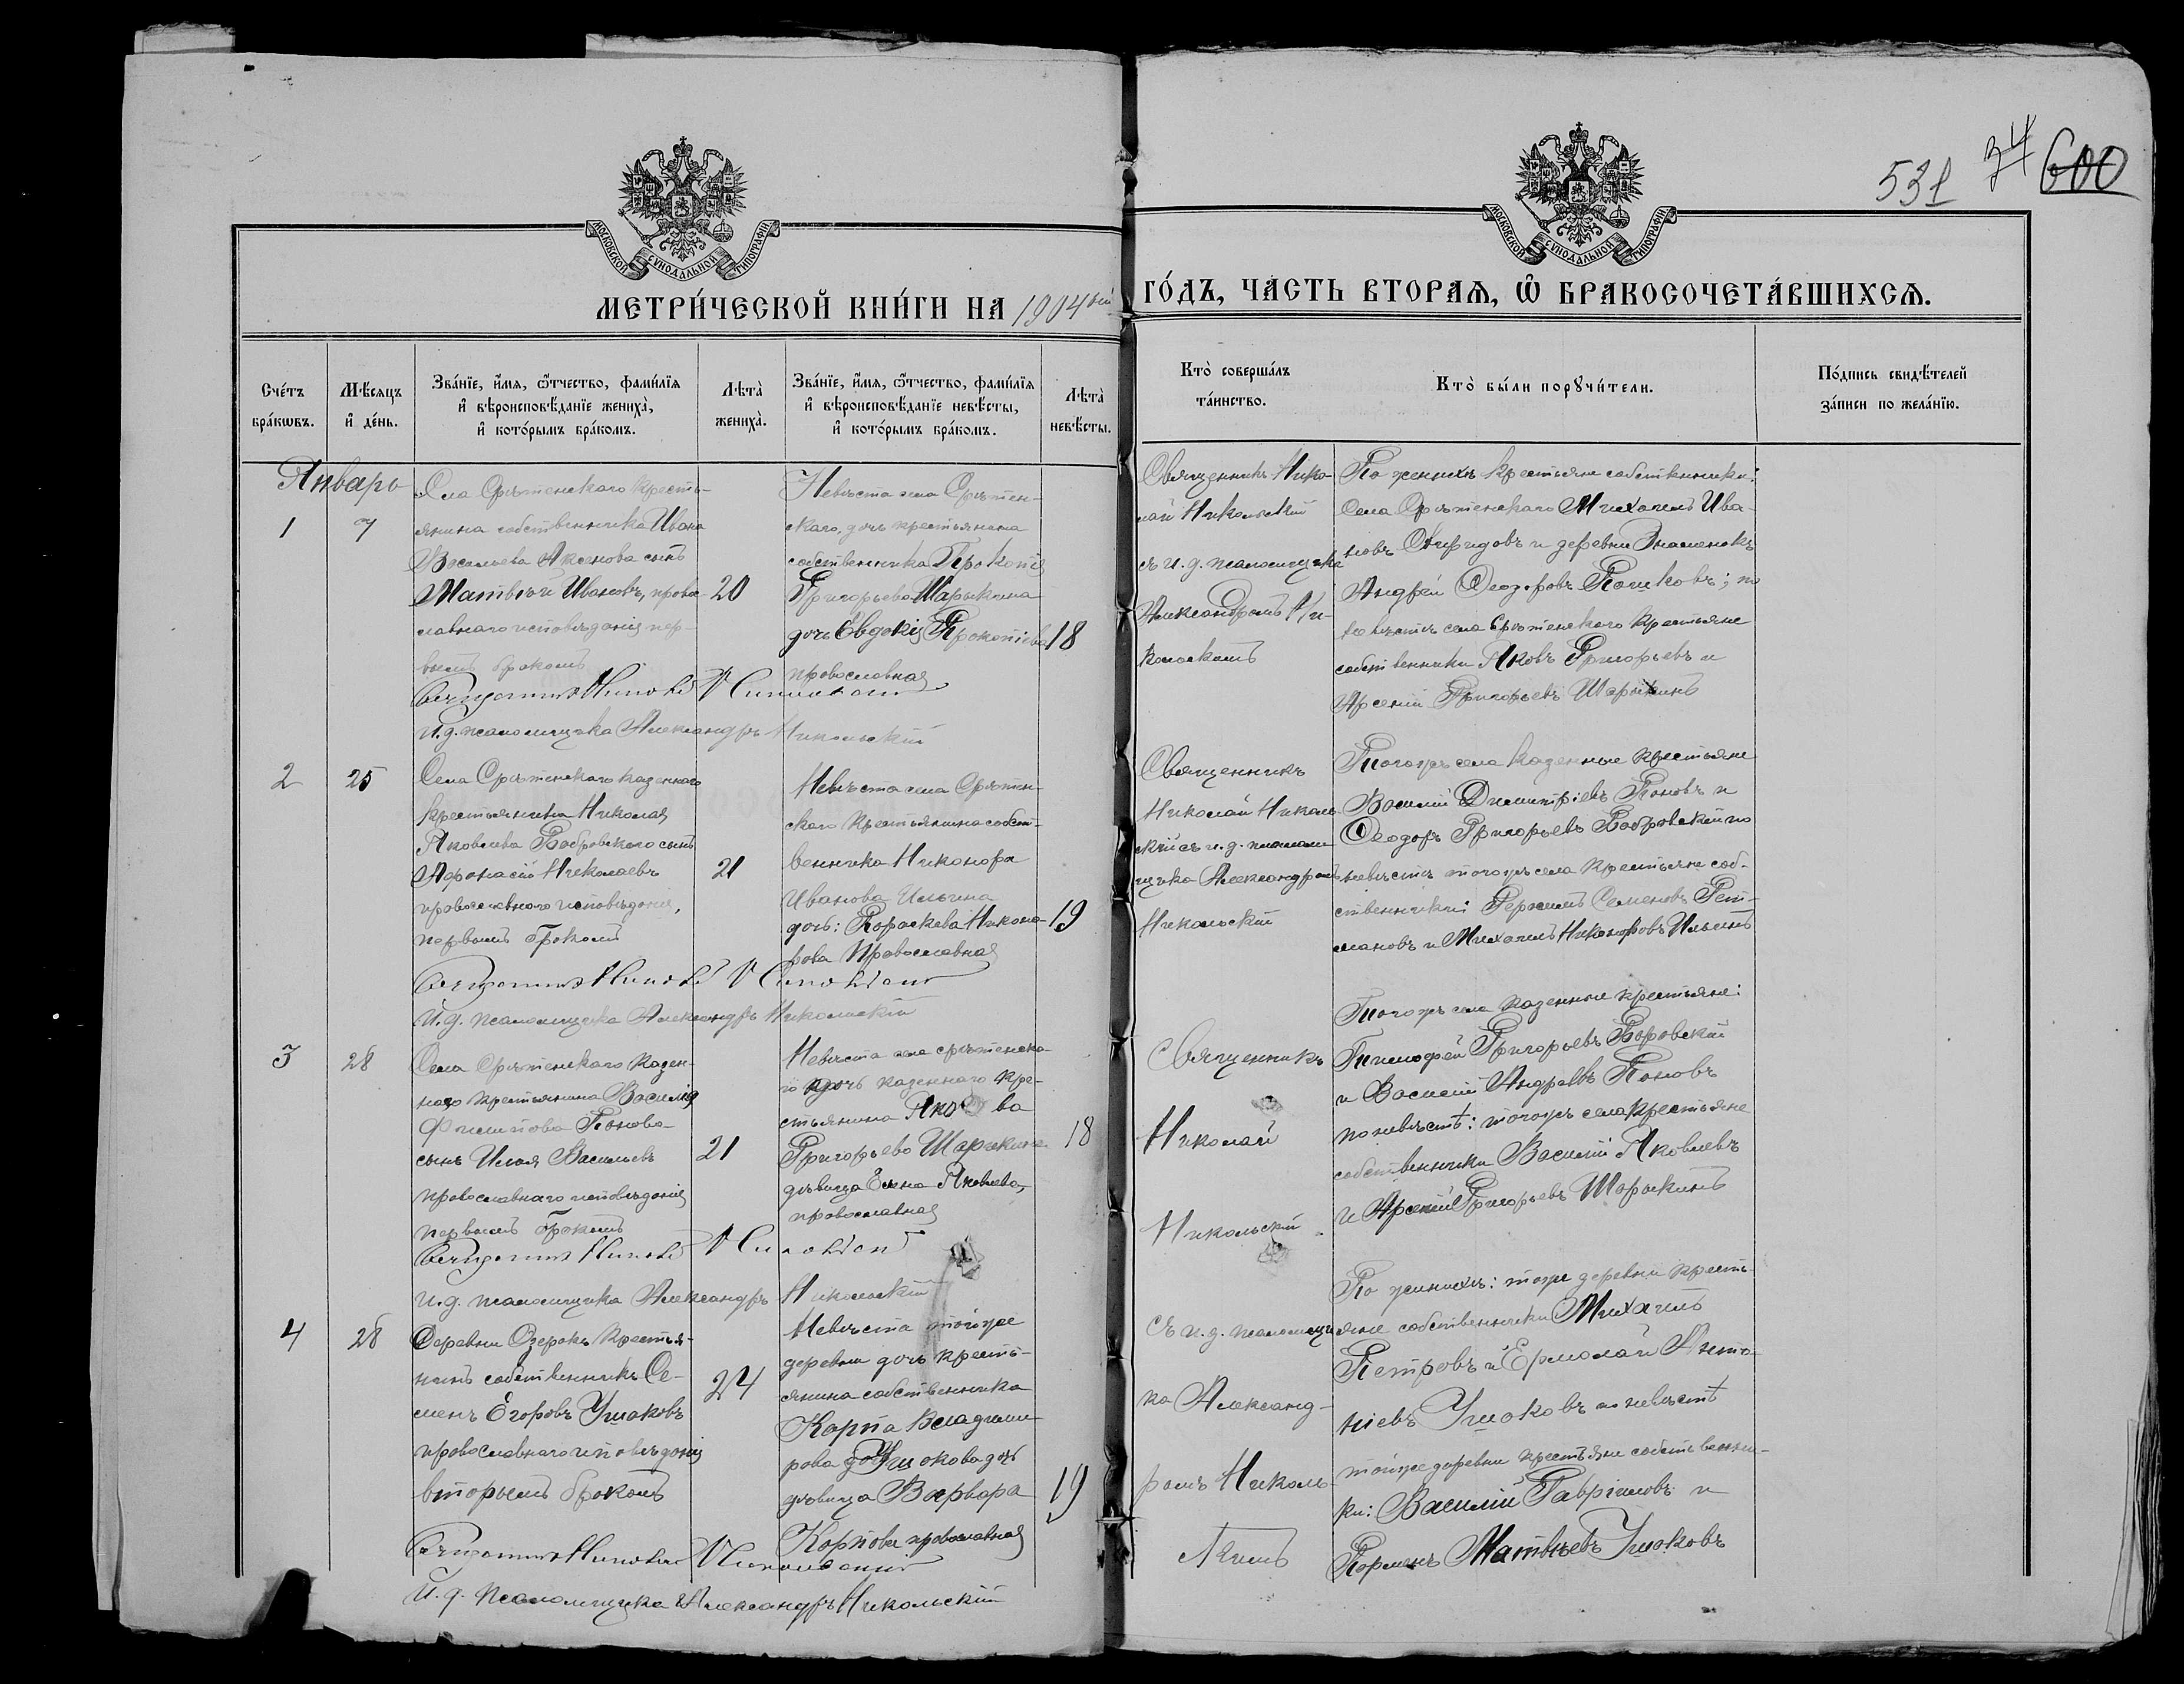 531 34 600
МОСКОВСКОЙ СѴНОДАЛЬНОЙ ТИПОГРАФІИ
МОСКОВСКОЙ СѴНОДАЛЬНОЙ ТИПОГРАФІИ
МЕТРИ́ЧЕСКОЙ КНИ́ГИ НА 1904 ый ГО́ДЪ, ЧА́СТЬ ВТОРА́Ѧ, Ѽ БРАКОСОЧЕТА́ВШИХСѦ.
Сче́тъ
бра́кѡвъ.
Мѣ́сяцъ
и҆ де́нь.
Зва́нїе, и҆́мя, ѻ҆́тчество, фами́лїя
и҆ вѣроисповѣ́данїе жениха̀,
и҆ кото́рымъ бра́комъ.
Лѣта̀
жениха̀.
Зва́нїе, и҆́мя, ѻ҆́тчество, фами́лїя
и҆ вѣроисповѣ́данїе невѣ́сты,
и҆ кото́рымъ бра́комъ.
Лѣта̀
невѣ́сты.
Кто̀ соверша́лъ
та́инство.
Кто̀ бы́ли порꙋчи́тели.
По́дпись свидѣ́телей
за́писи по жела́нїю.
Январь
1
7
Села Срѣтенскаго кресть-
янина собственника Ивана
Васильева Аксенова сынъ
Матвѣй Ивановъ, право-
славнаго исповѣданія пер-
вымъ бракомъ
20
Невѣста села Срѣтен-
скаго, дочь крестьянина
собственника Прокопія
Григорьева Шарыкина
дочь Евдокія Прокопіева
православная
18
Священникъ Николай Никольскій
И. д. псаломщика Александръ Никольскій
Священникъ Нико-
лай Никольскій
съ и. д. псаломщика
Александромъ Ни-
кольскимъ
По женихѣ крестьяне собственники:
Села Срѣтенскаго Михаилъ Ива-
новъ и деревни Знаменокъ
Андрей Ѳеодоровъ Пошковъ; по
невѣстѣ села Срѣтенскаго крестьяне
собственники Яковъ Григорьевъ и
Арсеній Григорьевъ Шарыкинъ
2
25
Села Срѣтенскаго казеннаго
крестьянина Николая
Яковлева Бобровскаго сынъ
Аѳанасій Николаевъ
православнаго исповѣданія,
первымъ бракомъ
21
Невѣста села Срѣтен-
скаго крестьянина собст-
венника Никонора
Иванова Ильина
дочь: Параскева Никоно-
рова Православная
19
Священникъ Николай Никольскій
И. д. псаломщика Александръ Никольскій
Священникъ
Николай Николь-
скій съ и. д. псалом-
щика Александромъ
Никольскій
Тогожъ села казенные крестьяне
Василій Димитріевъ Поповъ и
Ѳеодоръ Григорьевъ Бобровскій по
невѣстѣ тогожъ села крестьяне соб-
ственники: Герасимъ Семеновъ Гет-
мановъ и Михаилъ Никоноровъ Ильинъ
3
28
Села Срѣтенскаго Казен-
наго крестьянина Василія
Филипова Попова
сынъ Илья Васильевъ
православнаго исповѣданія
первымъ бракомъ
21
Невѣста села срѣтенска-
го дочь казеннаго кре-
стьянина Яко ва
Григорьева Шарыкина
дѣвица Елена Яковлева,
православная
18
Священникъ Николай Никольскій
И. д. псаломщика Александръ Никольскій
Священникъ
Николай
Никольскій
Тогожъ села казенные крестьяне:
Тимофей Григорьевъ Боровскій
и Василій Андреевъ Поповъ
по невѣстѣ: тогожъ села крестьяне
собственники Василій Яковлевъ
и Арсеній Григорьевъ Шарыкинъ
4
28
Деревни Озерокъ крестья-
нинъ собственникъ Се-
менъ Егоровъ Ушаковъ
православнаго исповѣданія
вторымъ бракомъ
24
Невѣста тойже
деревни дочь кресть-
янина собственника
Карпа Владими-
рова Ушакова дочь
дѣвица Варвара
Карпова православная
19
Священникъ Николай Никольскій
И. д. псаломщика Александръ Никольскій
съ и. д. псаломщи-
ка Александ-
ромъ Николь-
скимъ
По женихѣ: тойже деревни кресть-
яне собственники Михаилъ
Петровъ и Ермолай Анто-
ніевъ Ушаковъ по невѣстѣ
тойже деревни крестьяне собственни-
ки: Василій Гавріиловъ и
Парменъ Матвѣевъ Ушаковъ